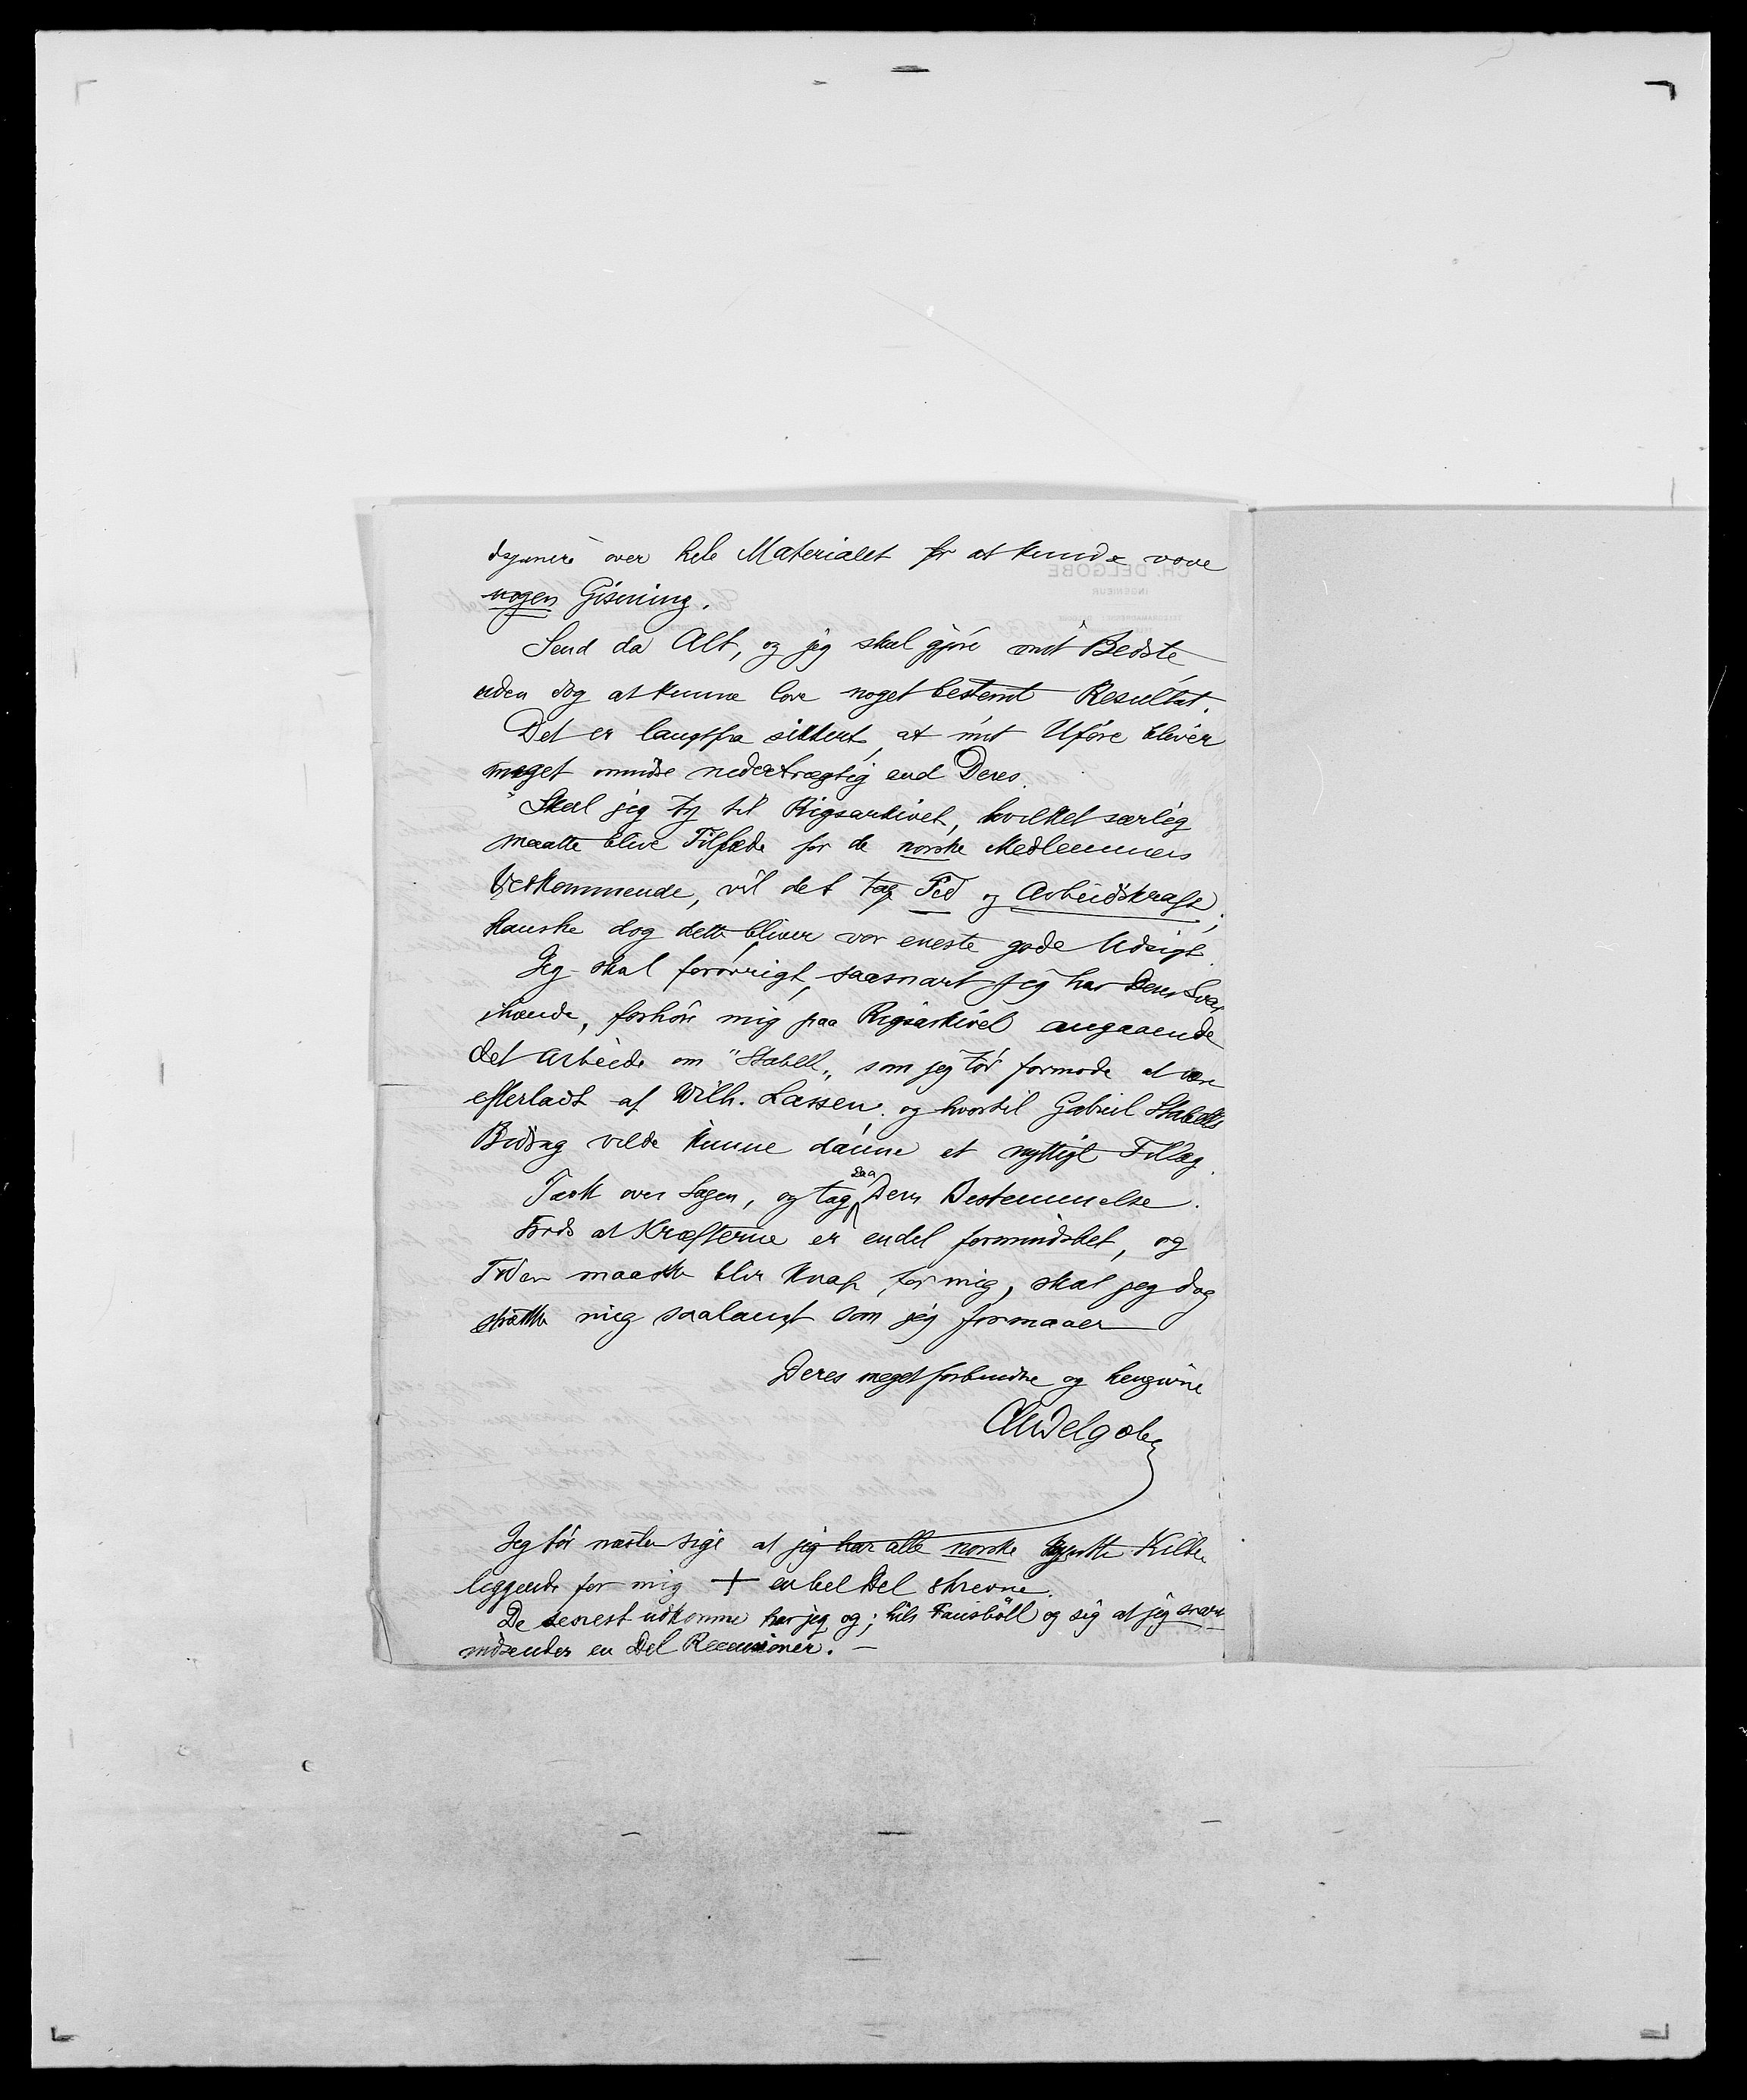 over hele Materialet for at kunde vove
nogen Gisning.
Send da Alt, og jeg skal gjøre mit Bedste
uden dog at kunne love noget bestemt Resultat.
Det er langtfra sikkert, at mit Uføre bliver
meget mindre nederdrægtig end Deres.
Skal jeg ty til Rigsarkivet, hvilket særlig
maatte blive Tilfælde for de norske Medlemmers
Vedkommende, vil det tag Tid og Arbeidskraft,
kanske dog dette bliver vor eneste gode Udsigt.
Jeg skal forøvrigt, saasnart jeg har Deres Svar
ihænde, forhøre mig paa Rigsarkivet angaaende
det Arbeide om "Stabell", som jeg tør formode at være
efterladt af Wilh. Lassen, og hvortil Gabriel Stabells
Bidrag vilde kunne danne et nyttigt Tillæg.
Tænk over Sagen, og tag saa Deres Bestemmelse.
Trods at Kræfterne er endel formindsket, og
Tiden maaske blir knap for mig, skal jeg dog
strække mig saalangt som jeg formaaer
Deres meget forbundne og hengivne
Ch Delgobe
Jeg tør næsten sige at jeg har alle norske trykte Kilder
liggende for mig + en hel Del skrevne.
De senest udkomne har jeg og; hils Fausböll og sig at jeg snart
indsender en Del Recensioner. —
CH. DELGOBE
INGENIEUR